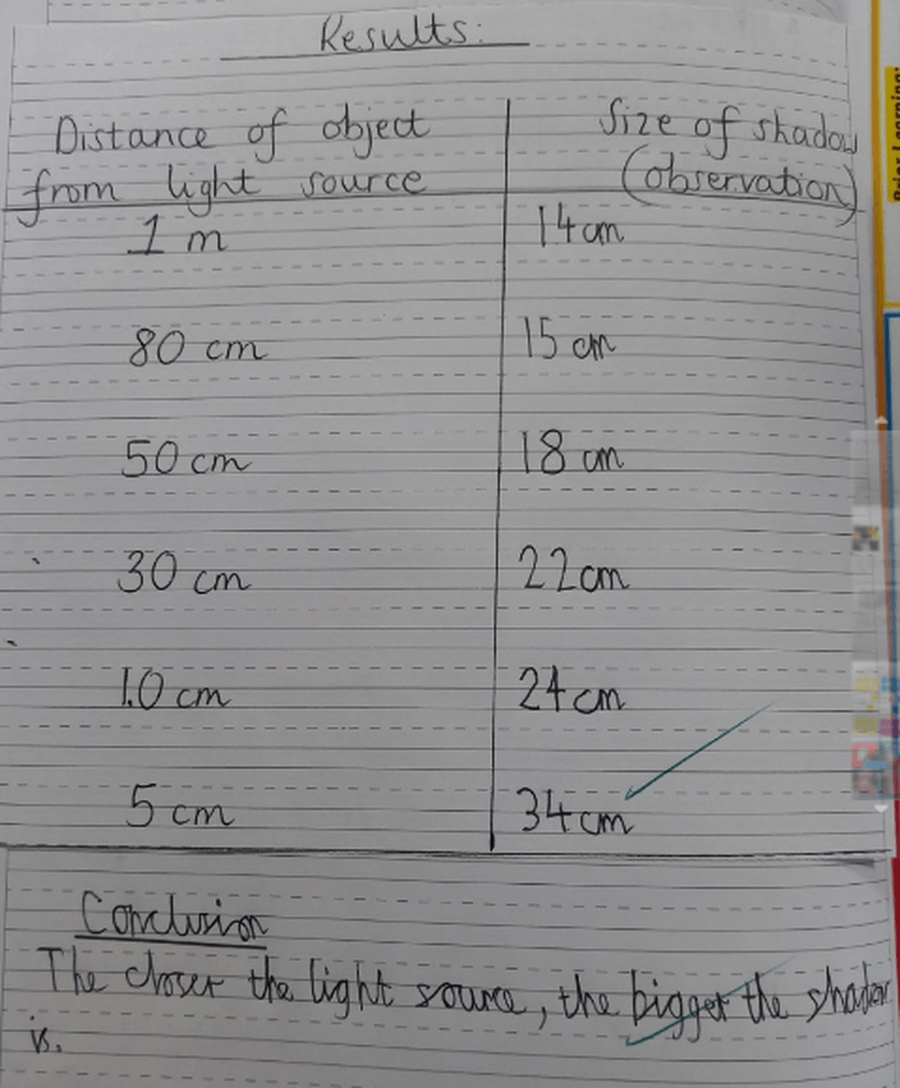 Results:
Distance of object from light source
Size of shadow (observation)
1 m 14cm
80 cm 15 cm
50 cm 18 cm
30 cm 22cm
1.0 cm 24cm
5 cm 34cm
Conclusion
The closer the light source, the bigger the shadow
is.